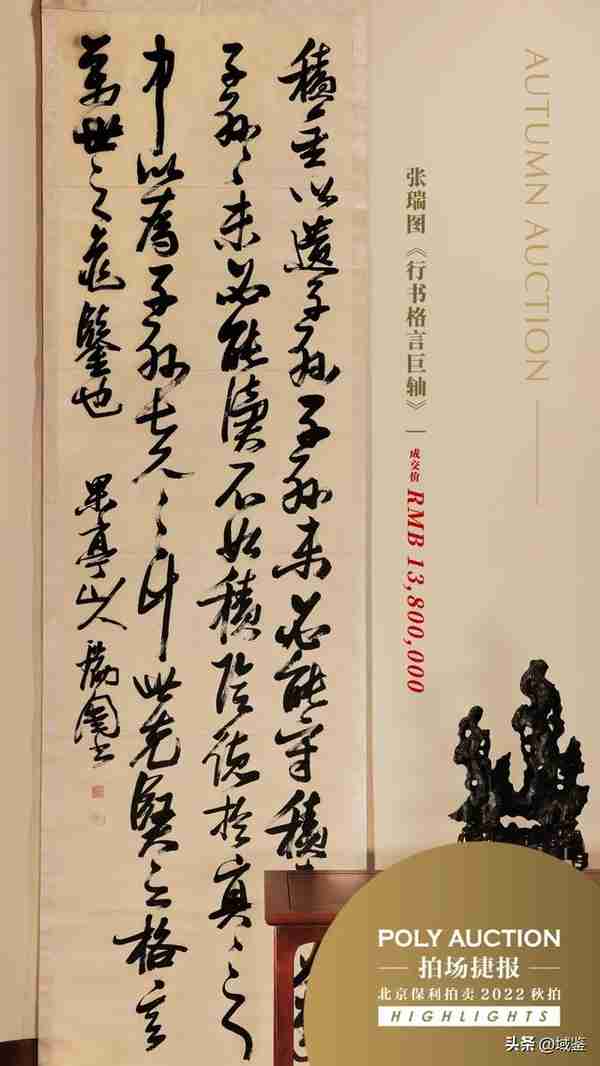 積金以遺子孫子孫未必能守積
子孫〻未必能讀不如積陰德於冥〻之
中以為子孫長久之計此先賢之格言
萬世之龜鑒也 果亭山人瑞圖書
AUTUMN AUCTION
张瑞图《行书格言巨轴》
成交价 RMB 13,800,000
POLY AUCTION
拍场捷报
北京保利拍卖2022秋拍
HIGHLIGHTS
头条 @域鉴